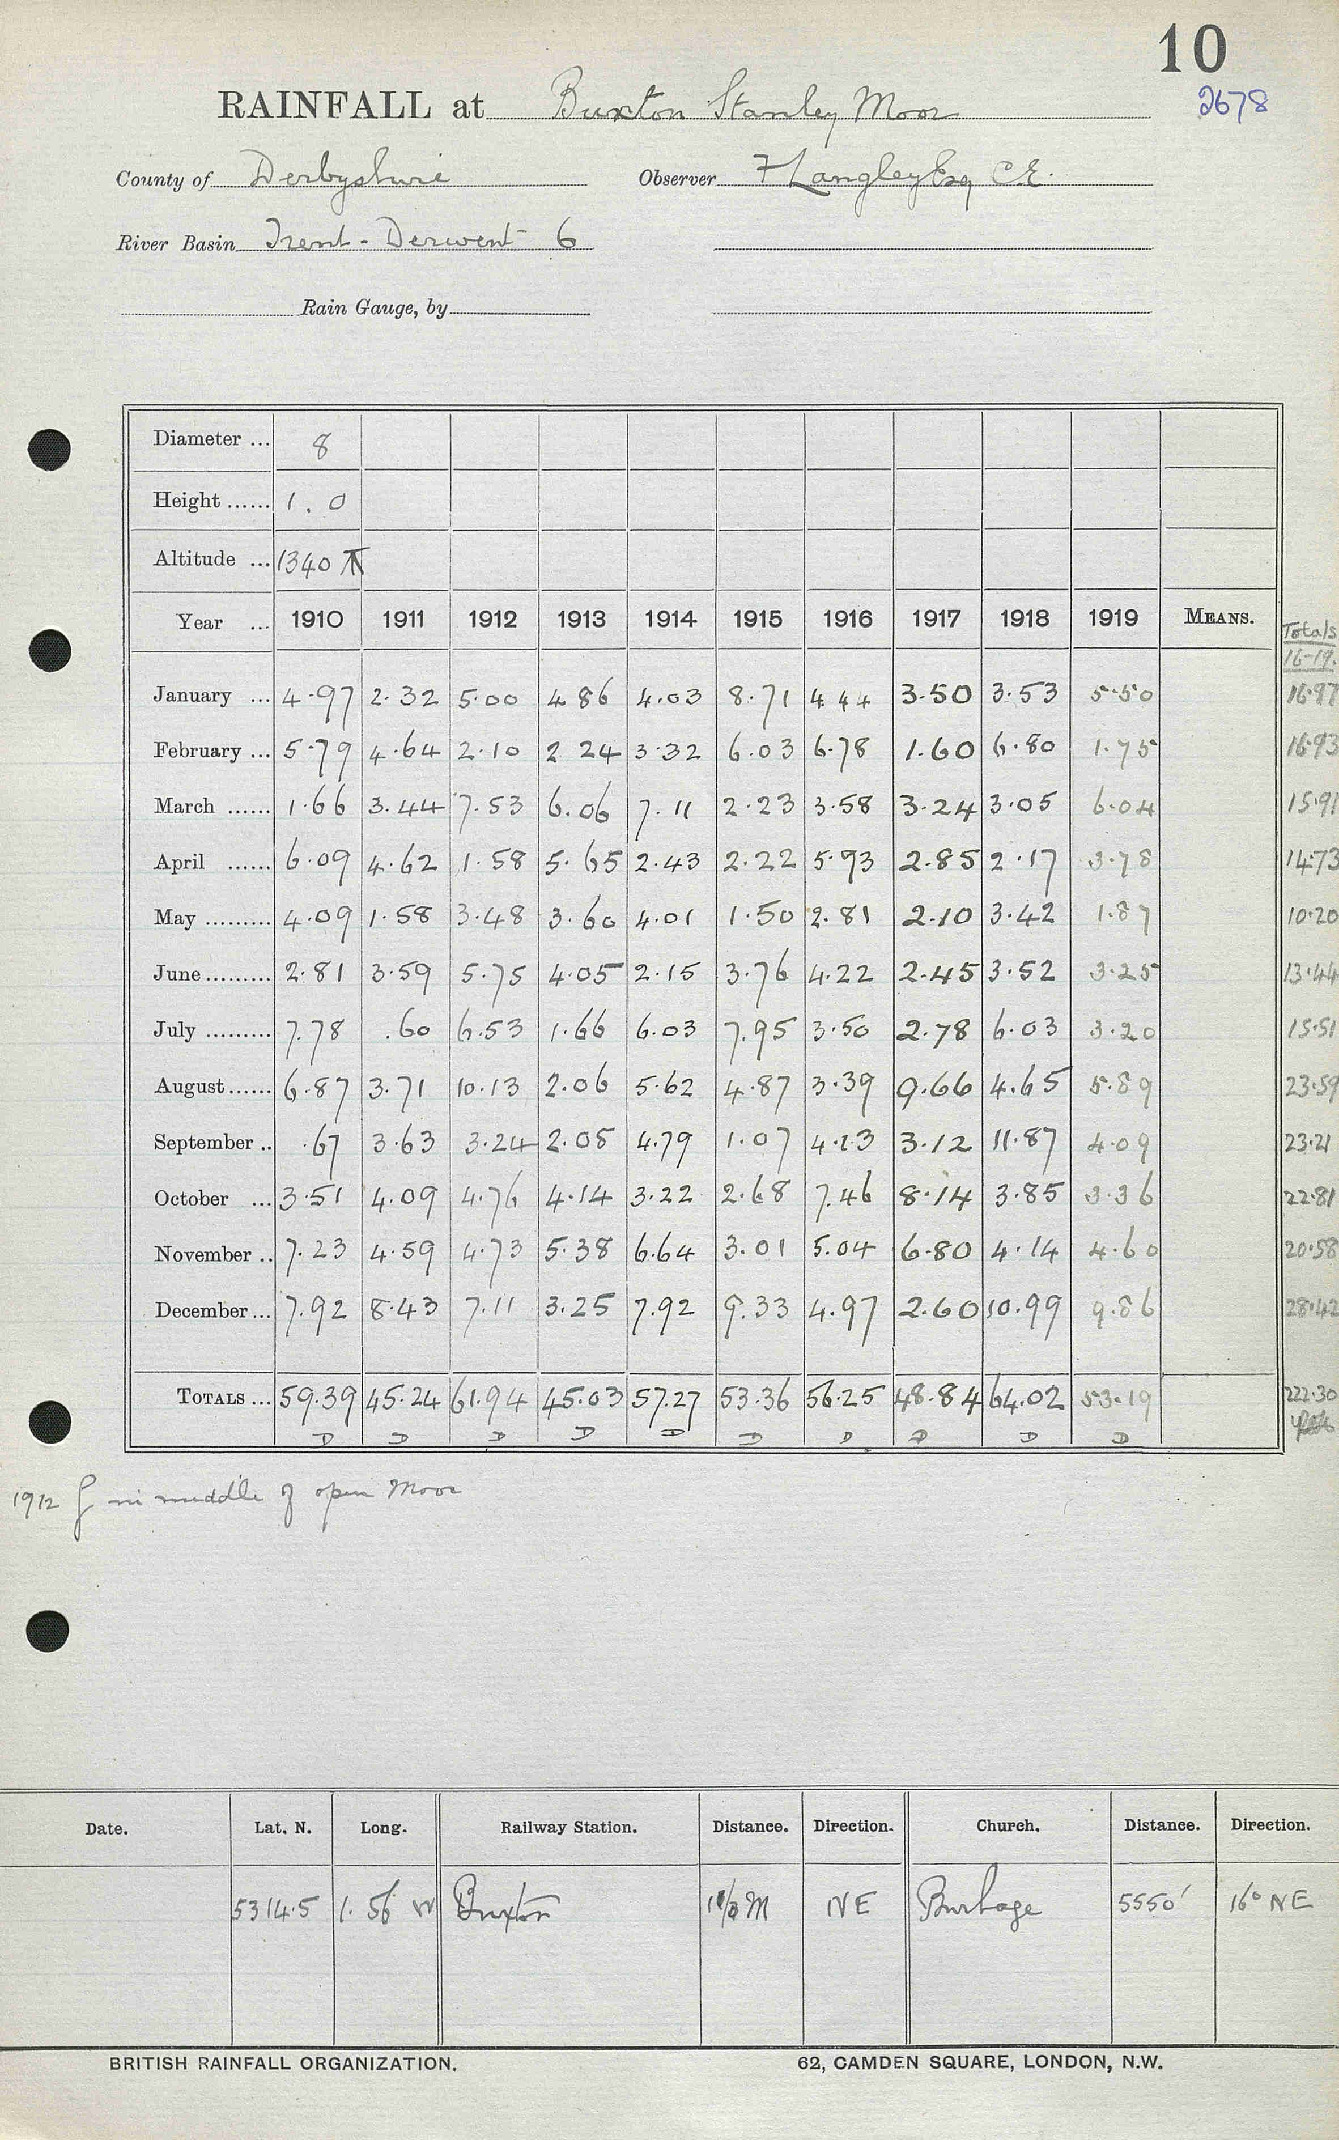 10
RAINFALL at Buxton Stanley Moor 2678
County of Derbyshire Observer F Langley Esq C.E.
River Basin Trent - Derwent 6
Rain Gauge, by
Diameter ... 8
Height ...... 1. 0
Altitude ... 1340
Year ... 1910 1911 1912 1913 1914 1915 1916 1917 1918 1919 MEANS. Totals
16-19.
January ... 4.97 2.32 5.00 4.86 4.03 8.71 4.44 3.50 3.53 5.50 16.97
February ... 5.79 4.64 2.10 2.24 3.32 6.03 6.78 1.60 6.80 1.75 16.93
March ...... 1.66 3.44 7.53 6.06 7.11 2.23 3.58 3.24 3.05 6.04 15.91
April ...... 6.09 4.62 1.58 5.65 2.43 2.22 5.93 2.85 2.17 3.78 14.73
May ......... 4.09 1.58 3.48 3.60 4.01 1.50 2.81 2.10 3.42 1.87 10.20
June ......... 2.81 3.59 5.75 4.05 2.15 3.76 4.22 2.45 3.52 3.25 13.44
July ......... 7.78 .60 6.53 1.66 6.03 7.95 3.50 2.78 6.03 3.20 15.51
August ...... 6.87 3.71 10.13 2.06 5.62 4.87 3.39 9.66 4.65 5.89 23.59
September .. .67 3.63 3.24 2.08 4.79 1.07 4.13 3.12 11.87 4.09 23.21
October ... 3.51 4.09 4.76 4.14 3.22 2.68 7.46 8.14 3.85 3.36 22.81
November .. 7.23 4.59 4.73 5.38 6.64 3.01 5.04 6.80 4.14 4.60 20.58
December ... 7.92 8.43 7.11 3.25 7.92 9.33 4.97 2.60 10.99 9.86 28.42
TOTALS ... 59.39 45.24 61.94 45.03 57.27 53.36 56.25 48.84 64.02 53.19 222.30
D D D D D D D D D D
1912 G in middle of open Moor
Date. Lat. N. Long. Railway Station. Distance. Direction. Church. Distance. Direction.
53 14.5 1. 56 W Buxton M NE Burbage 5550' 16° NE
BRITISH RAINFALL ORGANIZATION. 62, CAMDEN SQUARE, LONDON, N.W.